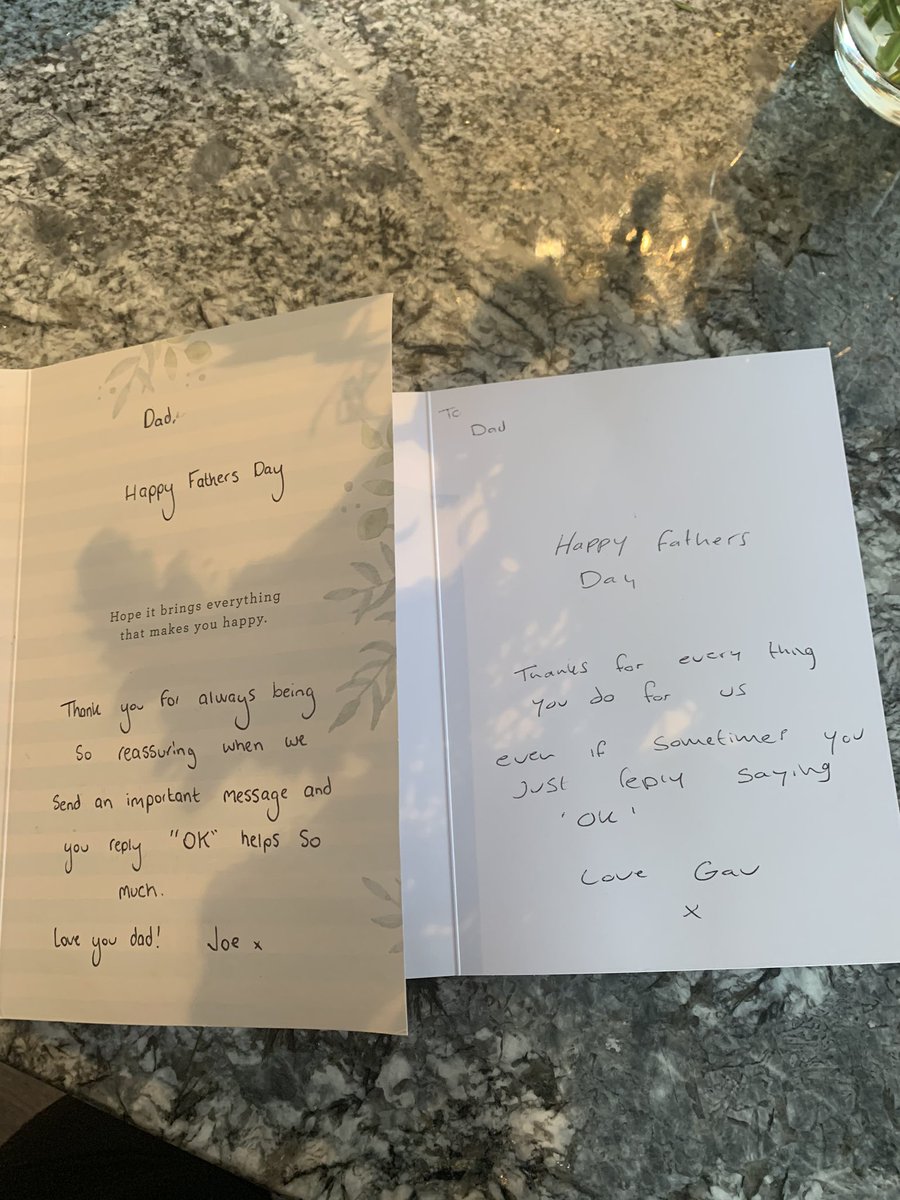 Dad,
Happy Fathers Day
Hope it brings everything
that makes you happy.
Thank you for always being
so reassuring when we
Send an important message and
you reply "OK" helps so
much.
Love you dad! Joe x
To
Dad
Happy Fathers
Day
Thanks for every thing
you do for us
even if sometimes you
just reply saying
'OK'
Love Gav
x